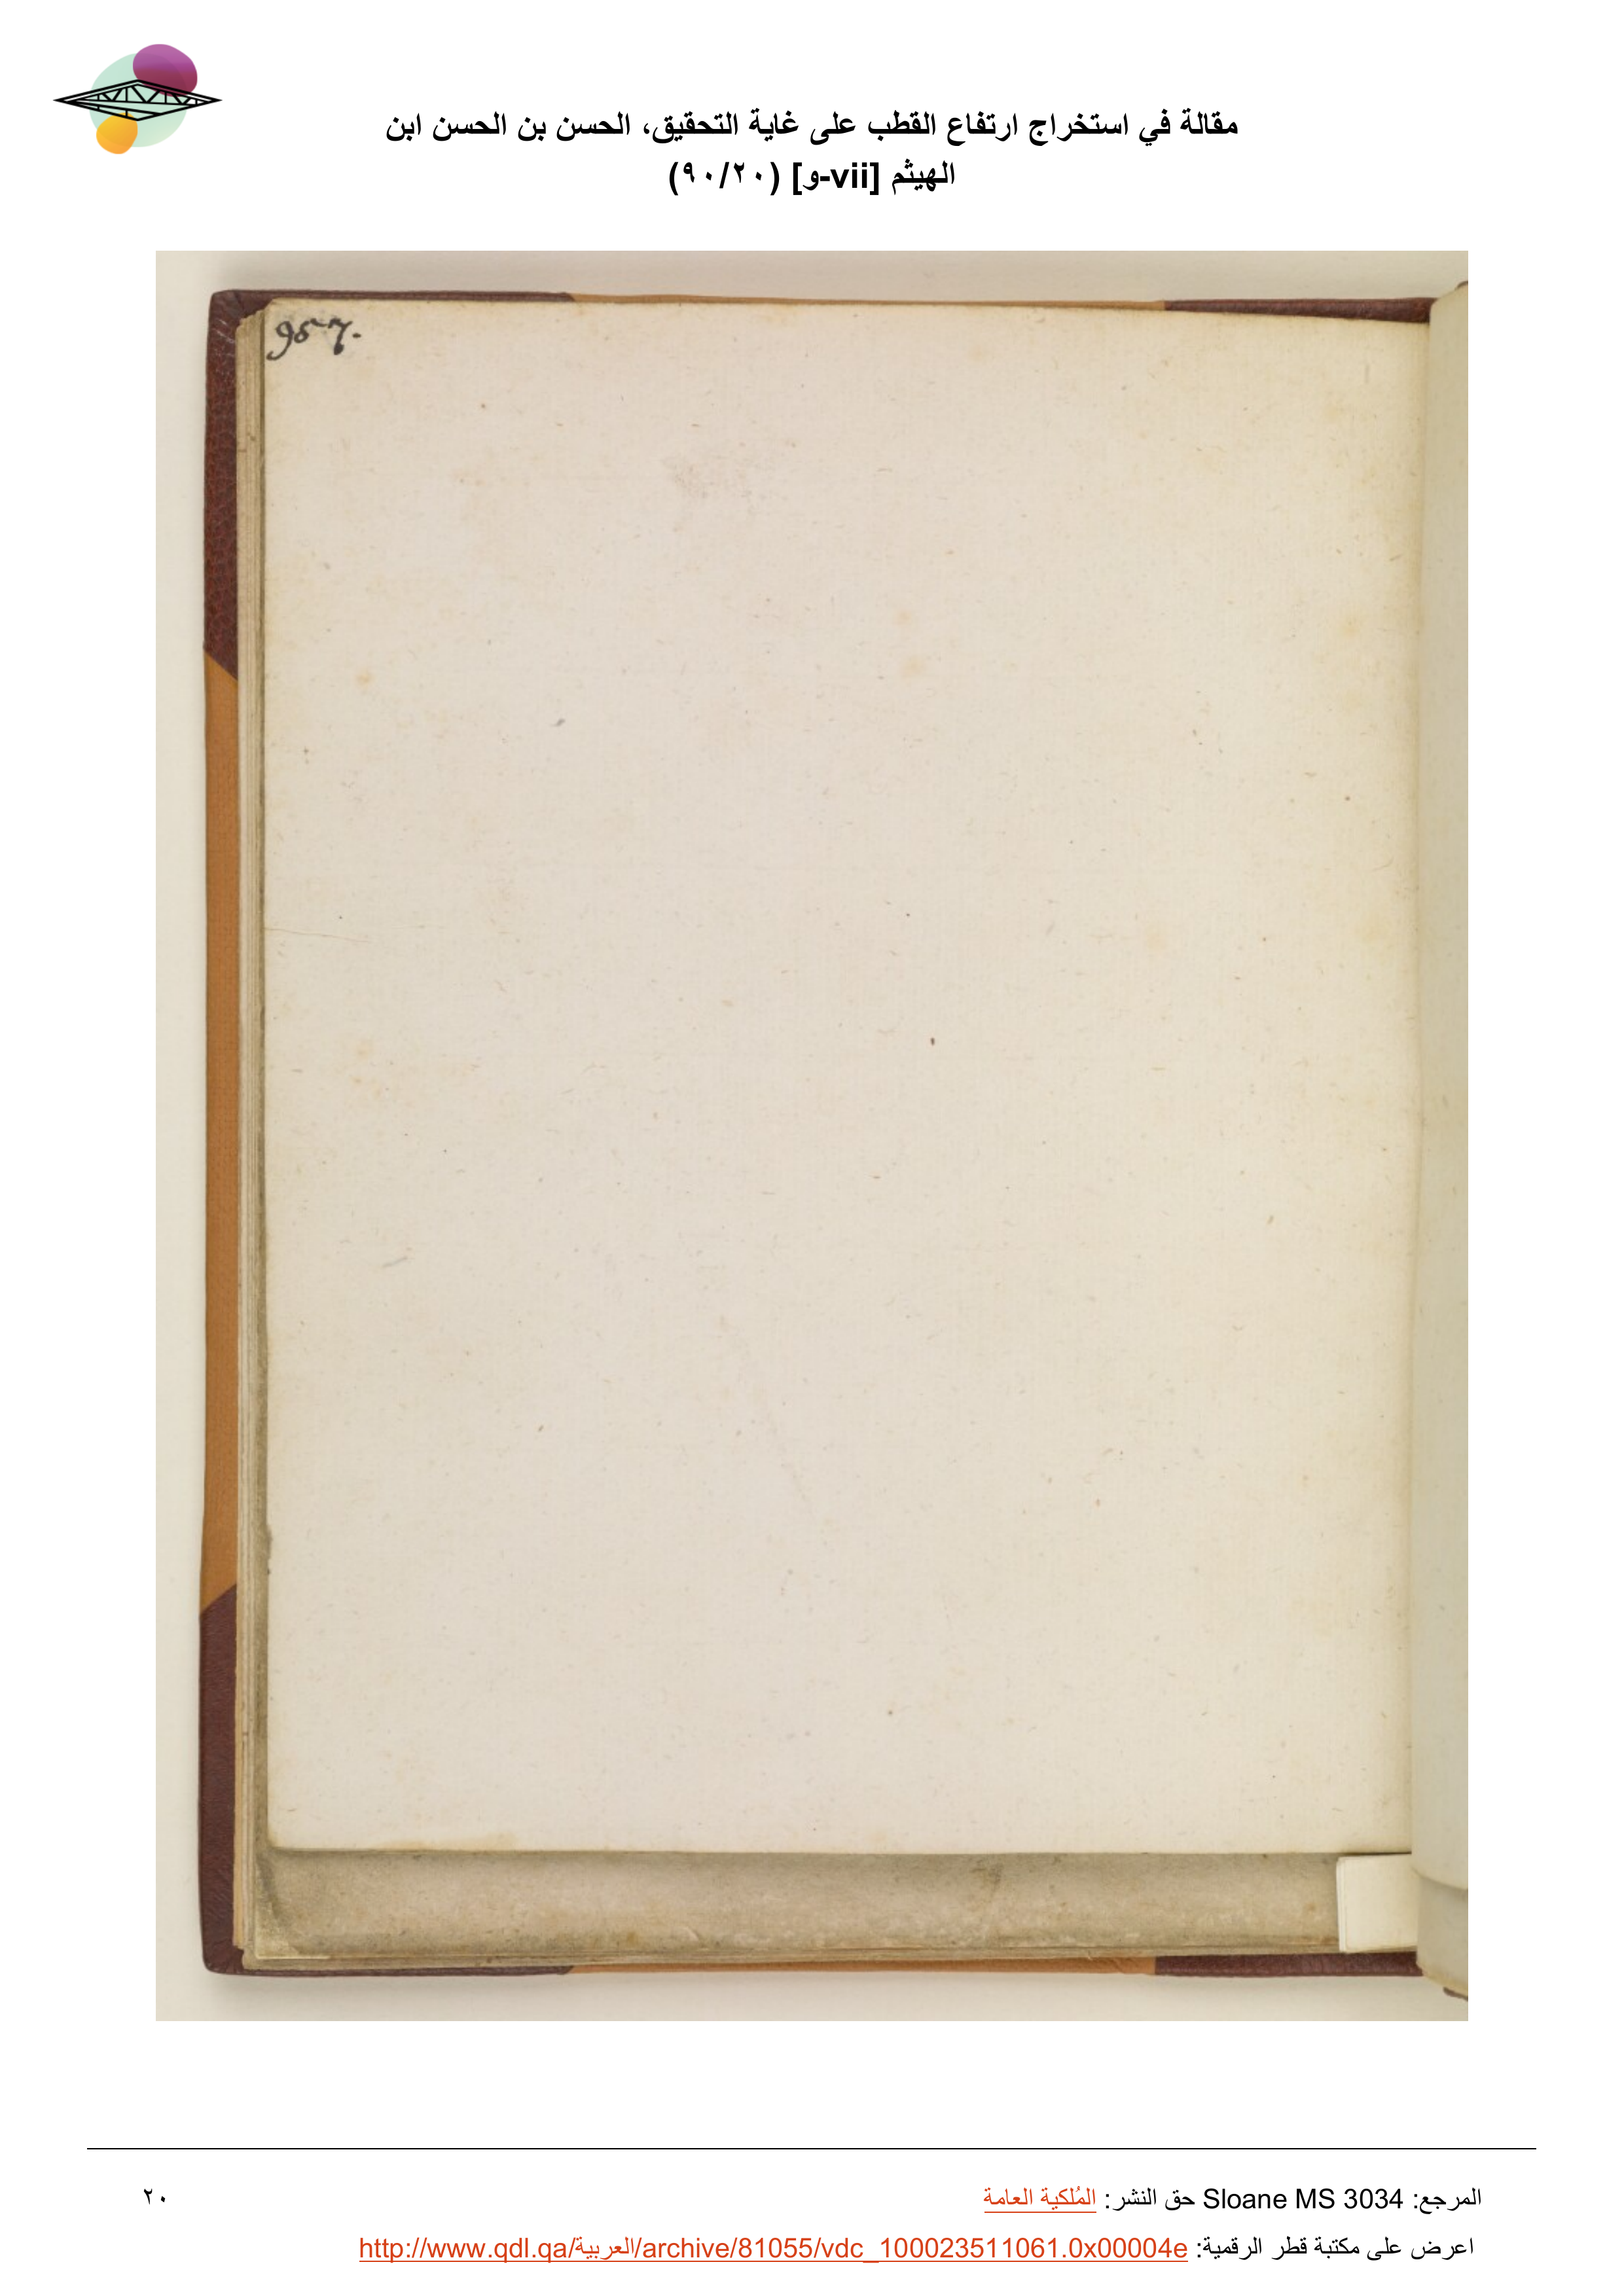 مقالة في استخراج ارتفاع القطب على غاية التحقيق، الحسن بن الحسن ابن
الهيثم [vii-و] (٩٠/٢٠)
957.
المرجع: Sloane MS 3034 حق النشر: المُلكية العامة
٢٠
اعرض على مكتبة قطر الرقمية: http://www.qdl.qa/العربية/archive/81055/vdc_100023511061.0x00004e